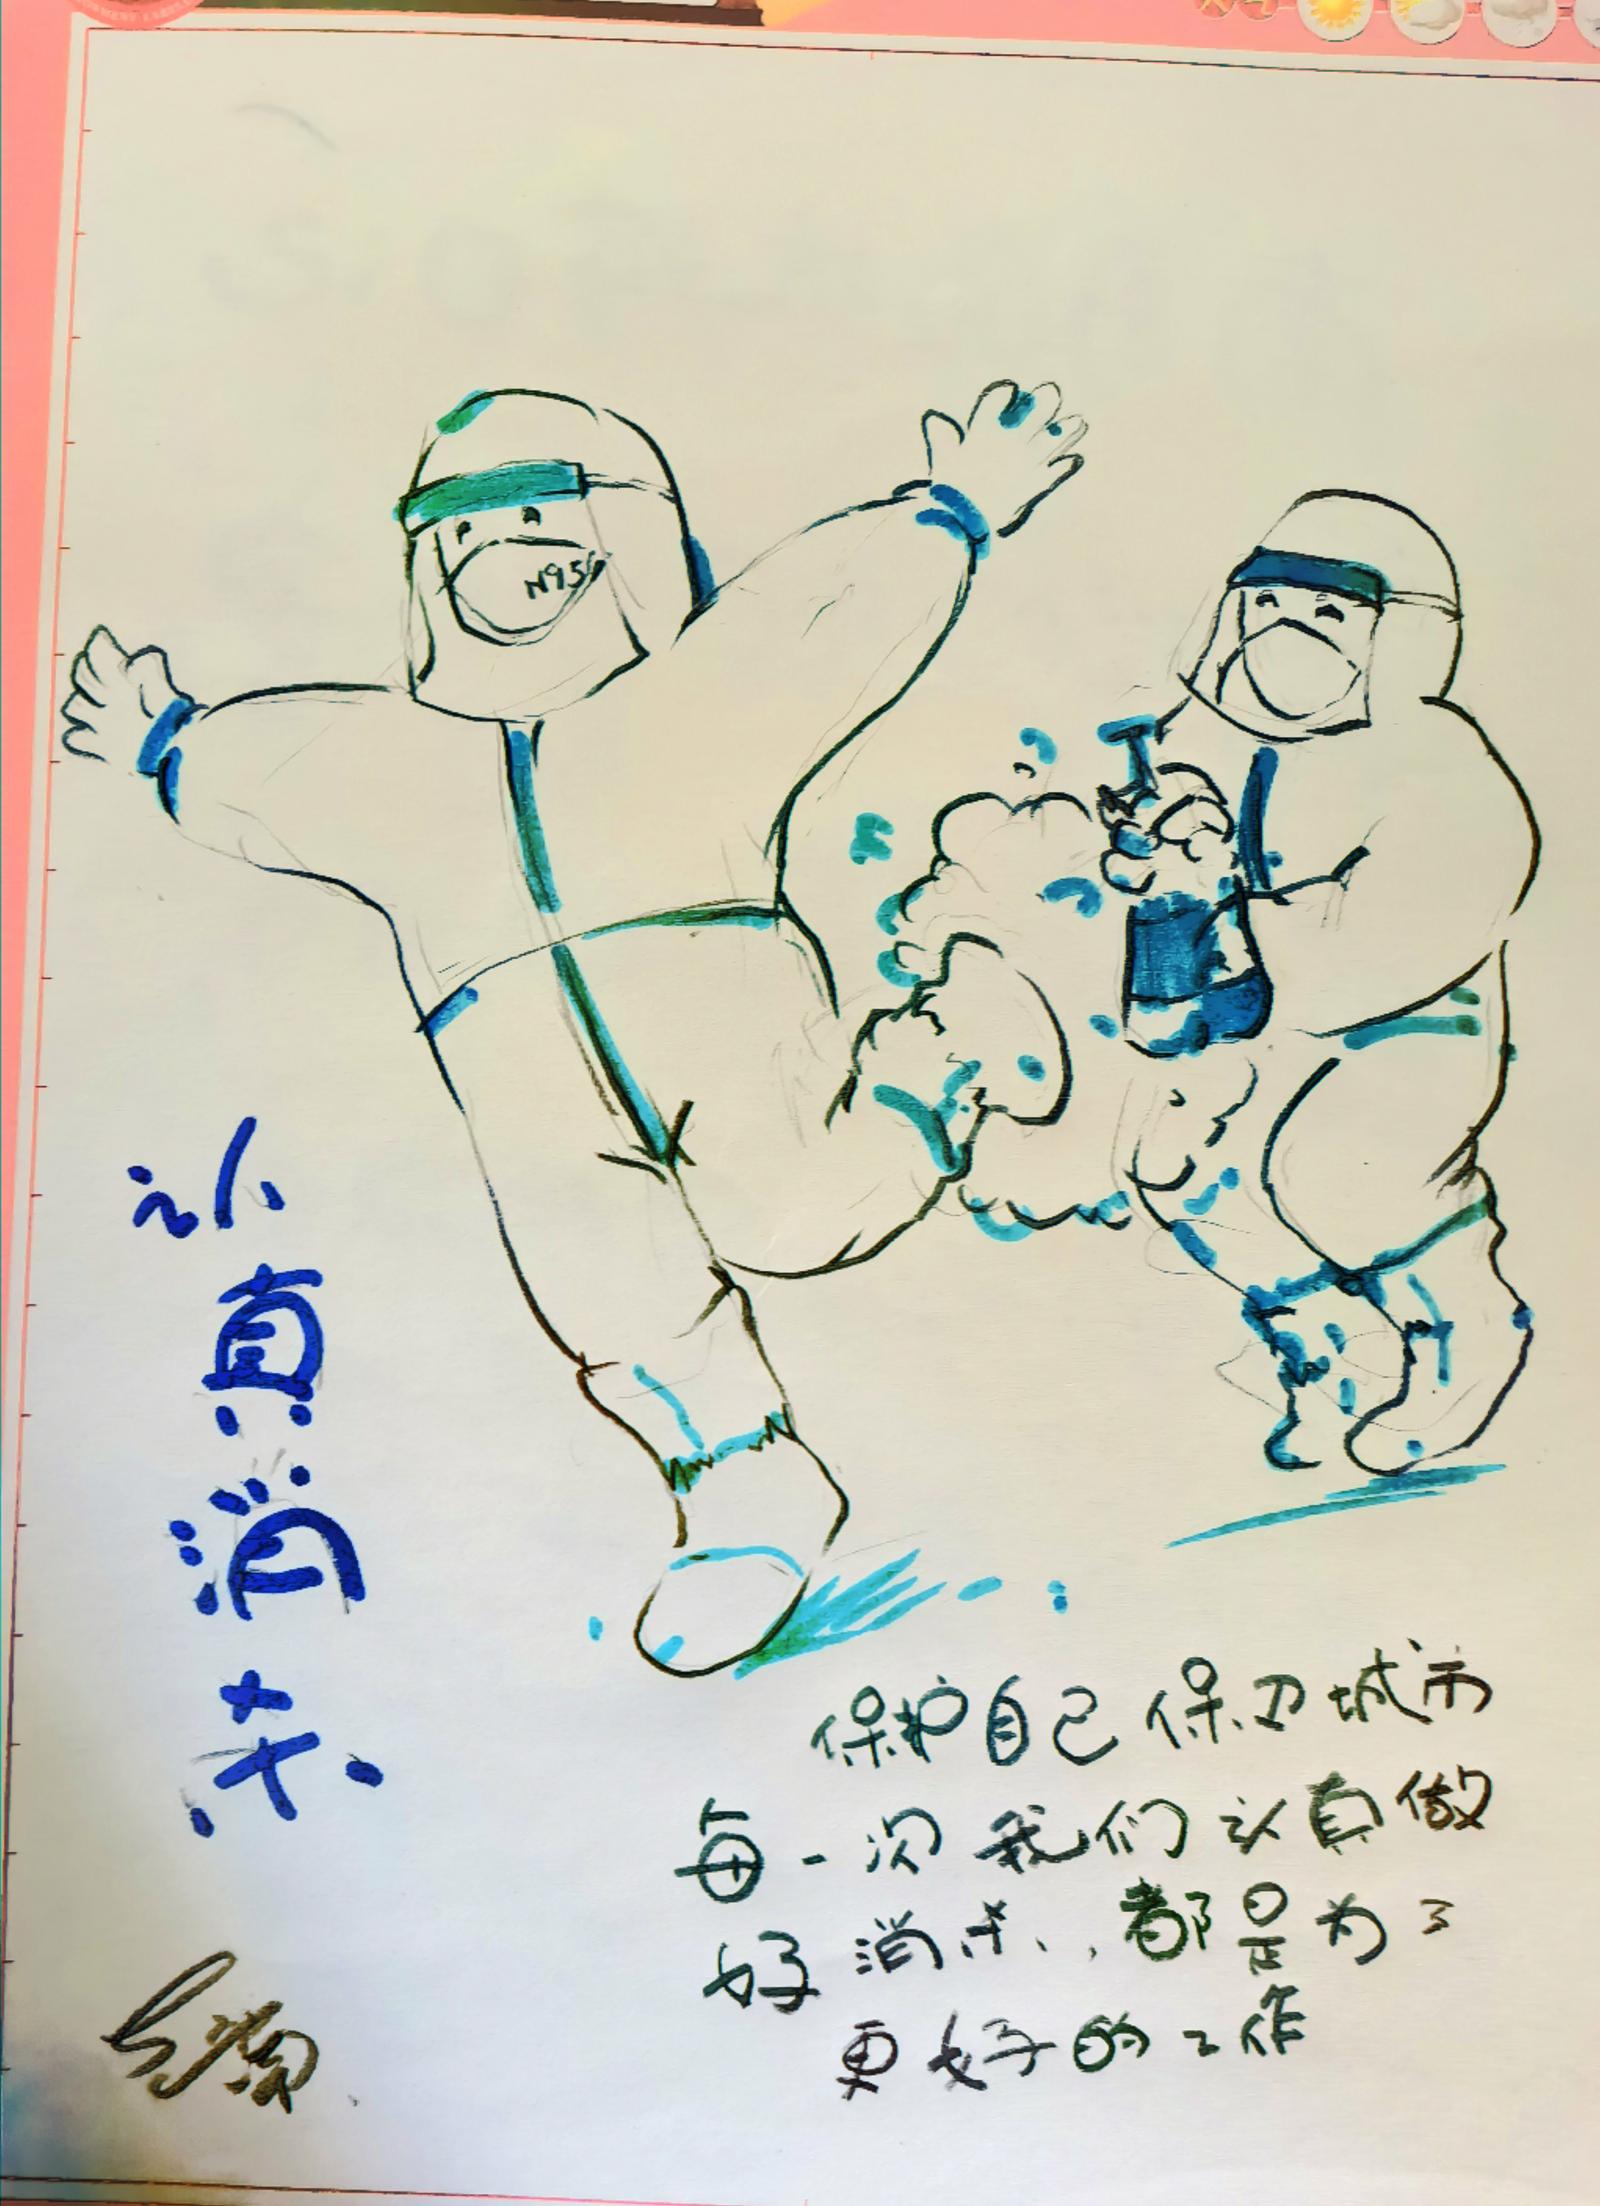 N95
认真消杀
保护自己保卫城市
每一次我们认真做
好消杀,都是为了
更好的工作